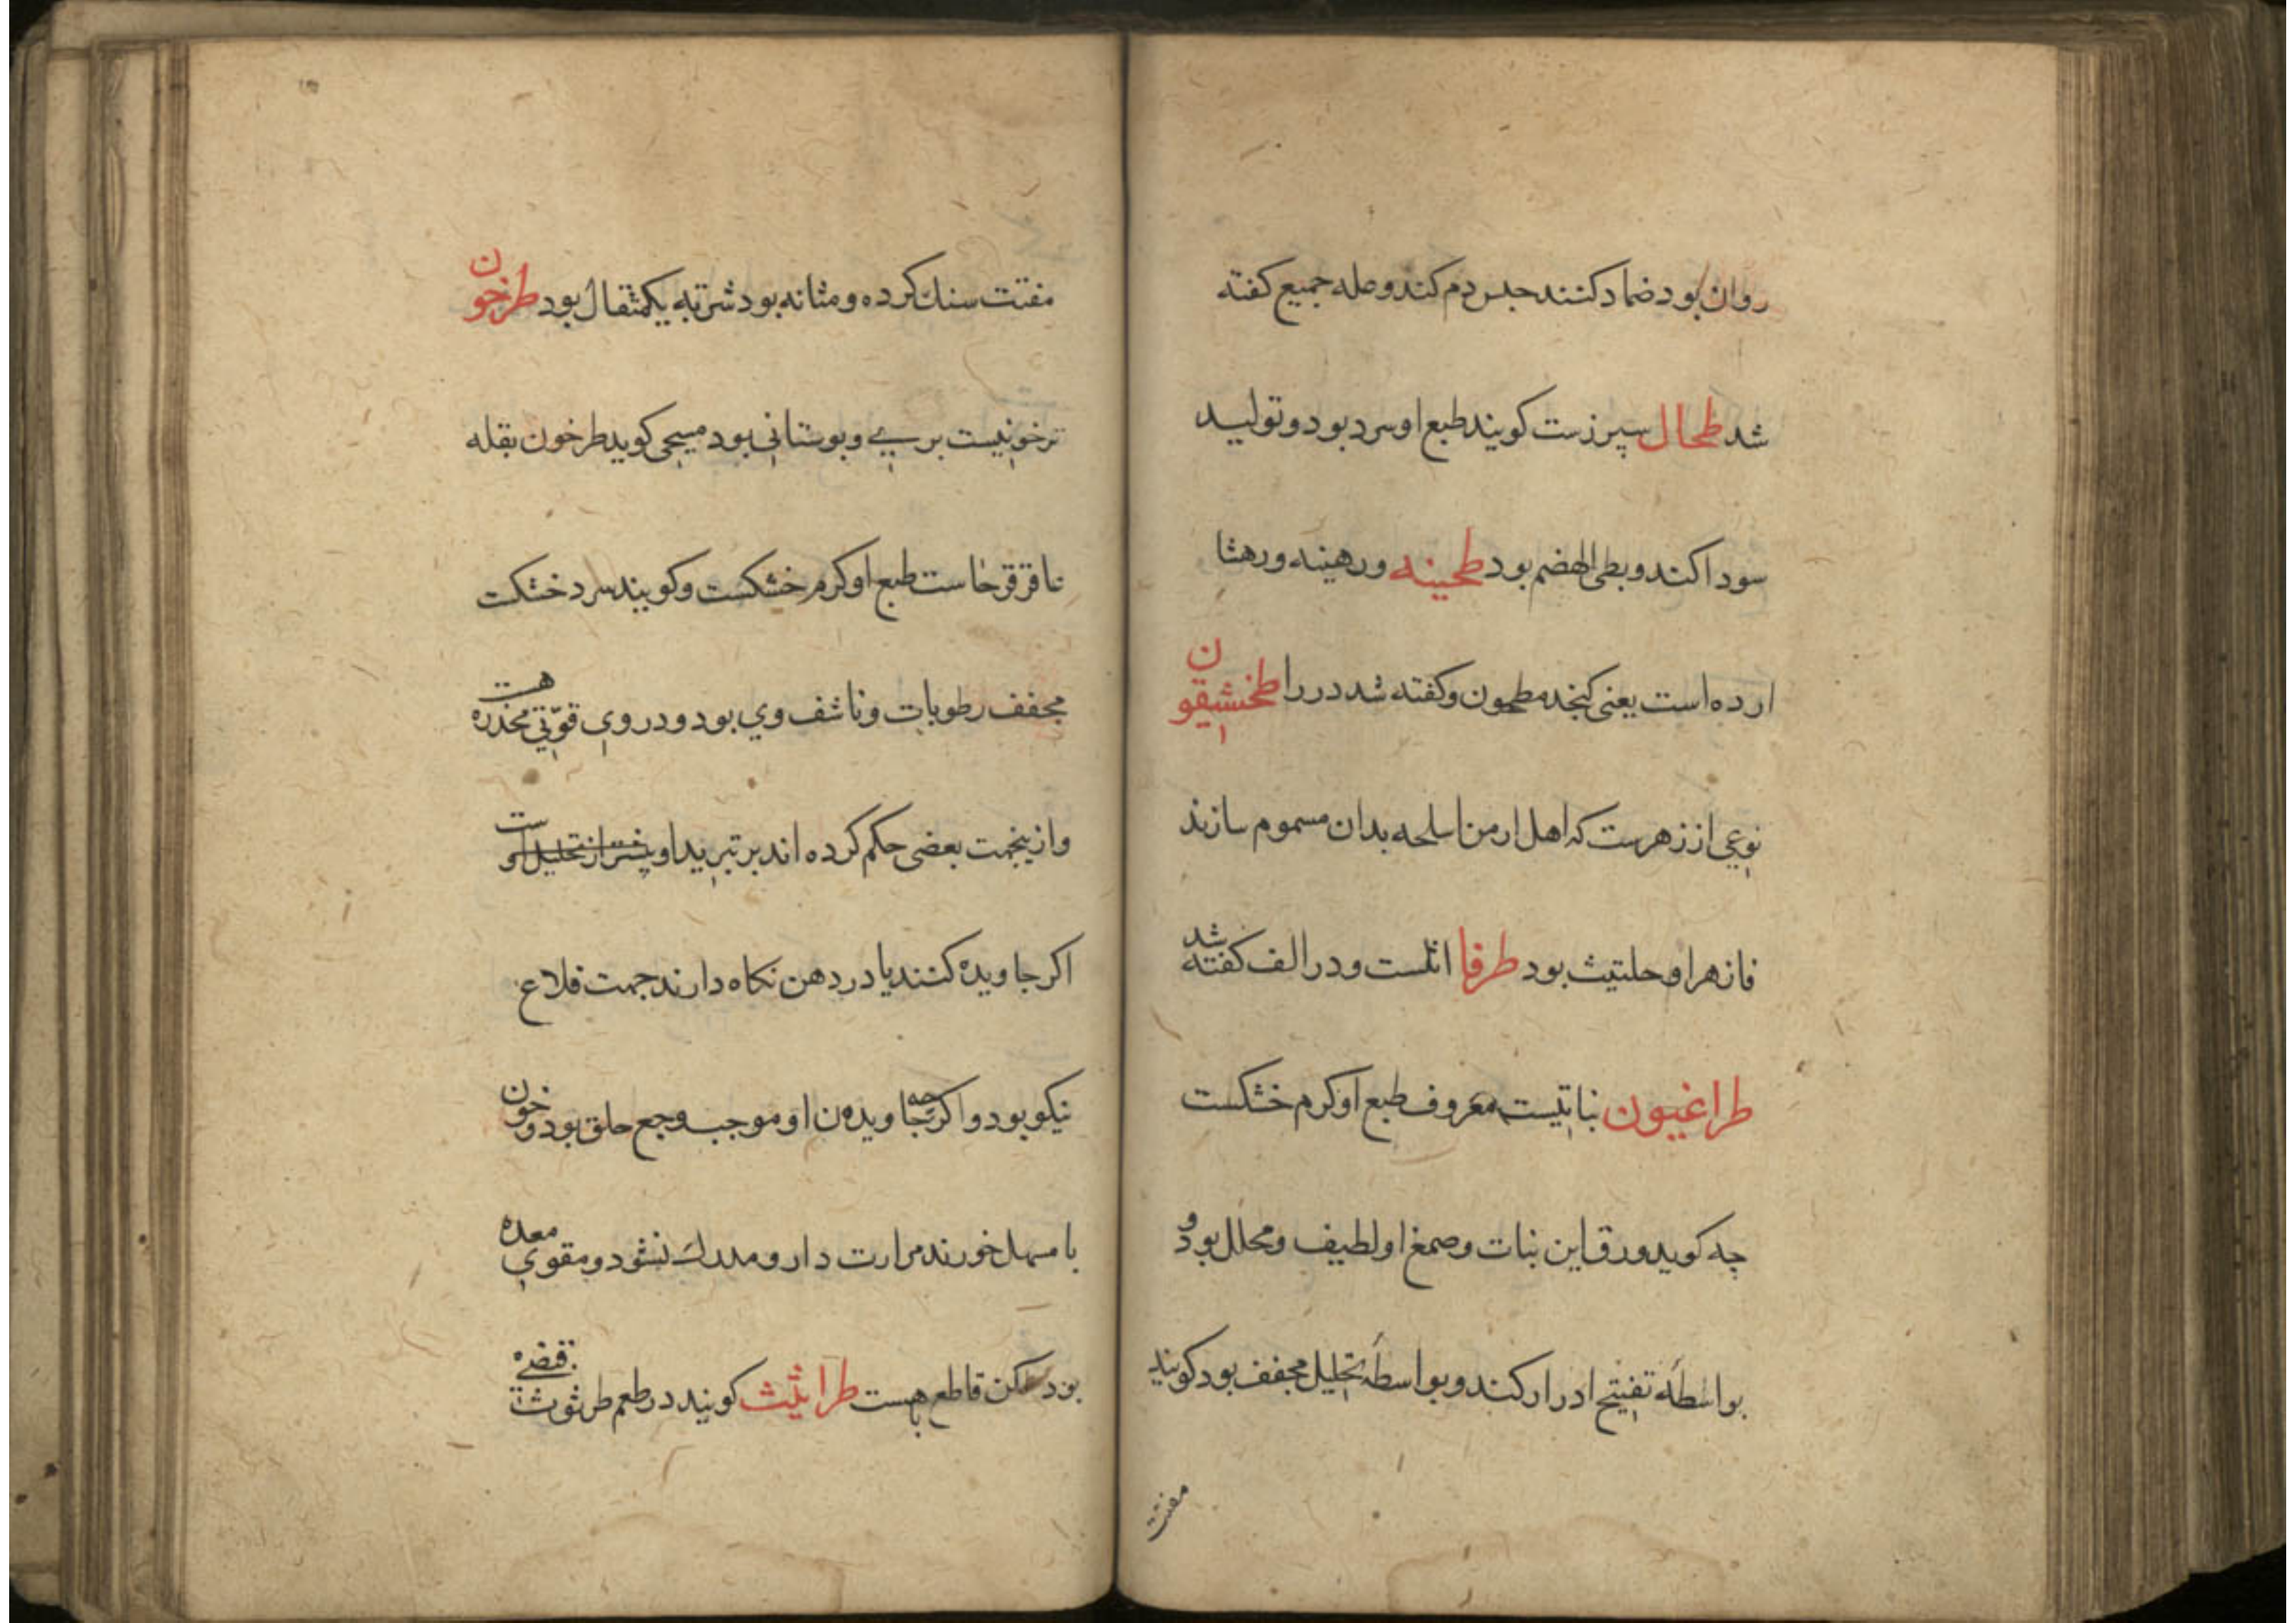 روان بود ضماد کنند حبس دم کند و مله جمیع کفته
شد طحال سپرزست کویند طبع او سرد بود و تولید
سودا کند و بطی الهضم بود طحینه ورهینه ورهشا
ارده است یعنی کنجد مطحون و کفته شد در را طخشیقون
نوعی از زهرست که اهل ارمن اسلحه بدان مسموم سازند
فازهر او حلتیث بود طرفا اثلست و در الف کفته شد
طراغیون نباتیست معروف طبع او کرم خشکست
چه کوید ورق این نبات و صمغ او لطیف و محلل بود و
بواسطه تفتیح ادرار کند و بواسطه تحلیل مجفف بود کویند
مفتت
مفتت سنک کرده و مثانه بود شربه یکمثقال بود طرخون
ترخونیست بریی و بوستانی بود مسیحی کوید طرخون بقله
ناقرقرحاست طبع او کرم خشکست و کویند سرد خشکت
مجفف رطوبات و ناشف وی بود و در وی قوّتی مخدره هست
و ازینجهت بعضی حکم کرده اند بر تبرید او بیشتر از تحلیل او ست
اکر جاویده کنند یا در دهن نکاه دارند جهت قلاع
نیکو بود و اکرچه جاویدن او موجب وجع حلق بود و خون
با مسهل خورند مرارت دارو مدرک نشود و مقوی معده
بود کن قاطع باهست طراثیث کویند در طعم طرثوث قبضی